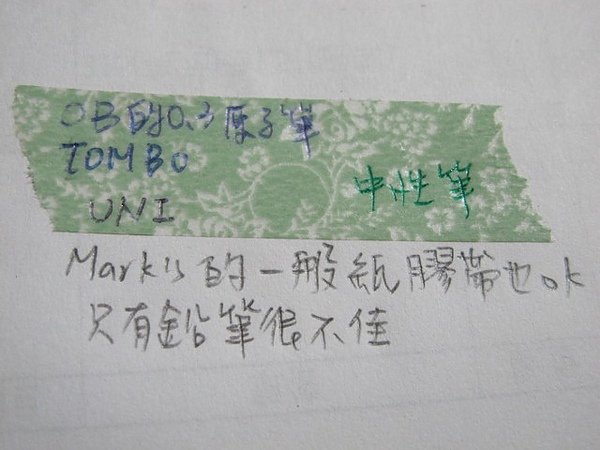 OB的0.3原子筆
TOMBO
UNI
中性筆
Mark's的一般紙膠帶也ok
只有鉛筆很不佳